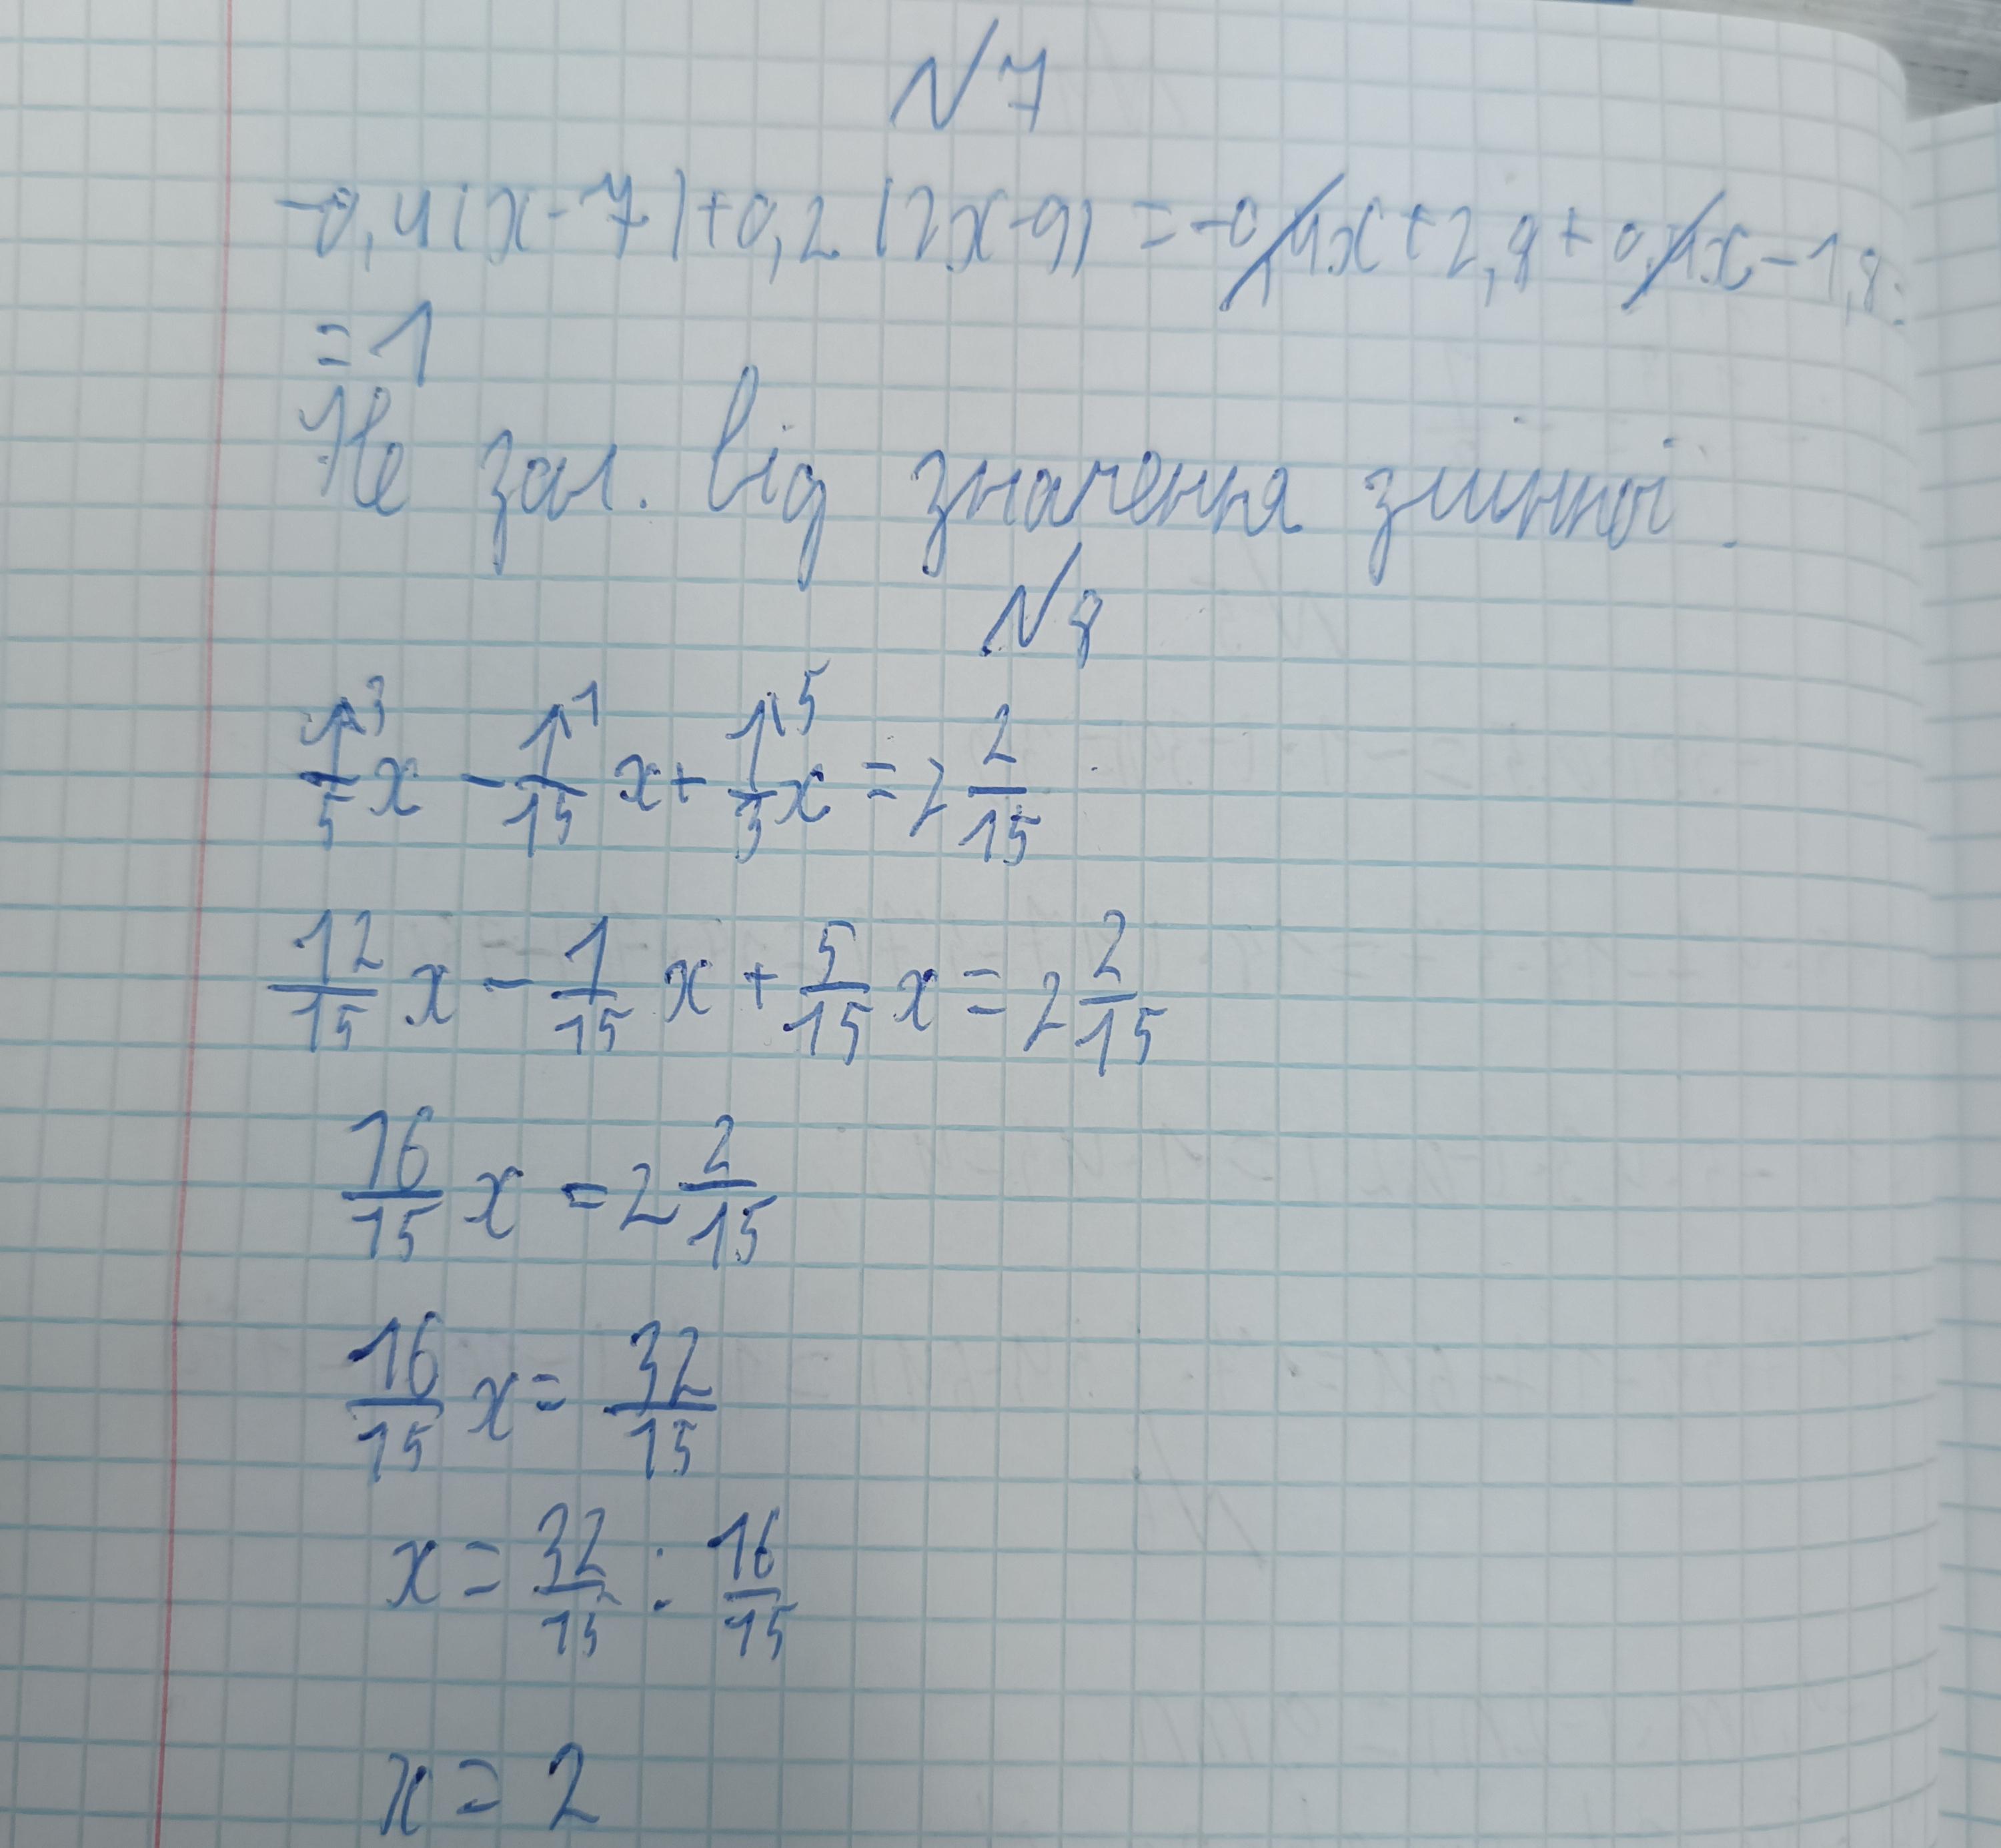 №7
-0,4(x-7)+0,2(2x-9) = -0,4x+2,8+0,4x-1,8=
=1
Не зал. від значення змінної.
№8
1/5^3 x - 1/15^1 x + 1/3^5 x = 2 2/15
12/15 x - 1/15 x + 5/15 x = 2 2/15
16/15 x = 2 2/15
16/15 x = 32/15
x = 32/15 : 16/15
x = 2